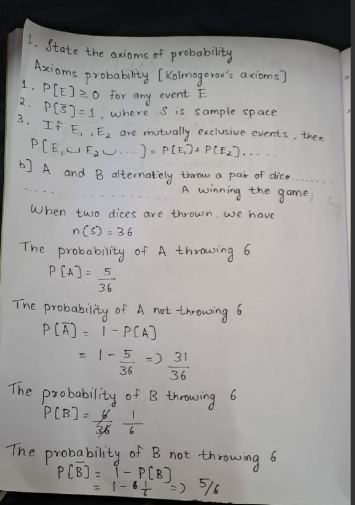 1. State the axioms of probability
Axioms probability [Kolmogorov's axioms]
1. P[E] ≥ 0 for any event E
2. P[S] = 1, where S is sample space
3. If E₁, E₂ are mutually exclusive events, then
P[E₁ ∪ E₂ ∪ ......] = P[E₁] + P[E₂].....
b] A and B alternately throw a pair of dice........
....................... A winning the game
When two dices are thrown. we have
n(S) = 36
The probability of A throwing 6
P[A] = 5/36
The probability of A not throwing 6
P[Ā] = 1 - P[A]
= 1 - 5/36 => 31/36
The probability of B throwing 6
P[B] = 6/36 1/6
The probability of B not throwing 6
P[B̄] = 1 - P[B]
= 1 - 1/6 => 5/6